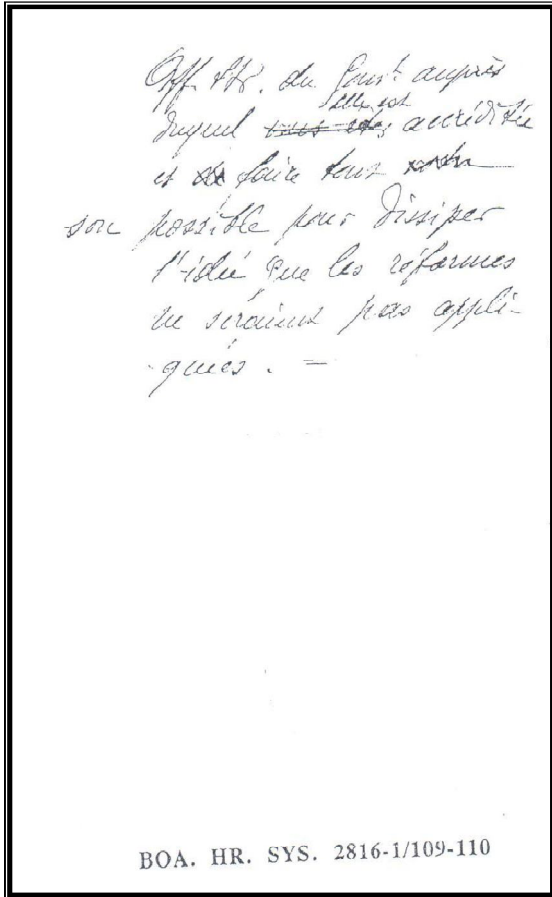 Aff. Etr. du Gouvt auprès
elle est
duquel vous êtes accréditée
et de faire tout
son possible pour dissiper
l'idée que les réformes
ne seraient pas appli-
quées. =
BOA. HR. SYS. 2816-1/109-110